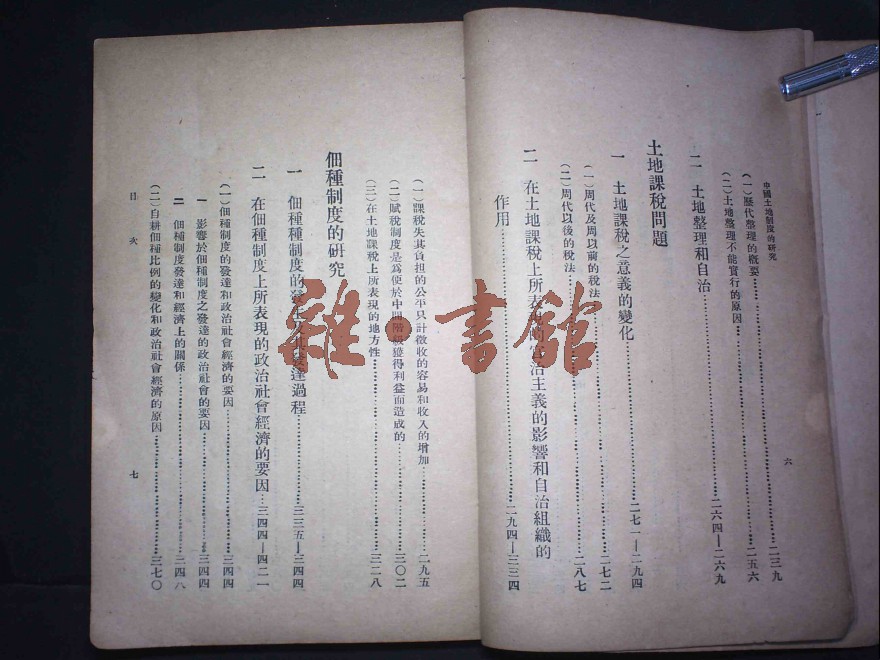 中國土地制度的研究
(一)歷代整理的概要……二三九
(二)土地整理不能實行的原因……二五六
二 土地整理和自治……二六四—二六九
土地課稅問題
一 土地課稅之意義的變化……二七一—二九四
(一)周代及周以前的稅法……二七二
(二)周代以後的稅法……二八七
二 在土地課稅上所表現的官治主義的影響和自治組織的
作用……二九四—三三四
六
(一)課稅失其負担的公平只計徵收的容易和收入的增加……二九五
(二)賦稅制度是為便於中間階級獲得利益而造成的……三〇二
(三)在土地課稅上所表現的地方性……三二八
佃種制度的研究
一 佃種種制度的發生及其發達過程……三三五—三四四
二 在佃種制度上所表現的政治社會經濟的要因…三四四—四二一
(一)佃種制度的發達和政治社會經濟的要因……三四四
一 影響於佃種制度之發達的政治社會的要因……三四四
二 佃種制度發達和經濟上的關係……三四八
(二)自耕佃種比例的變化和政治社會經濟的原因……三七〇
目次
七
雜·書館